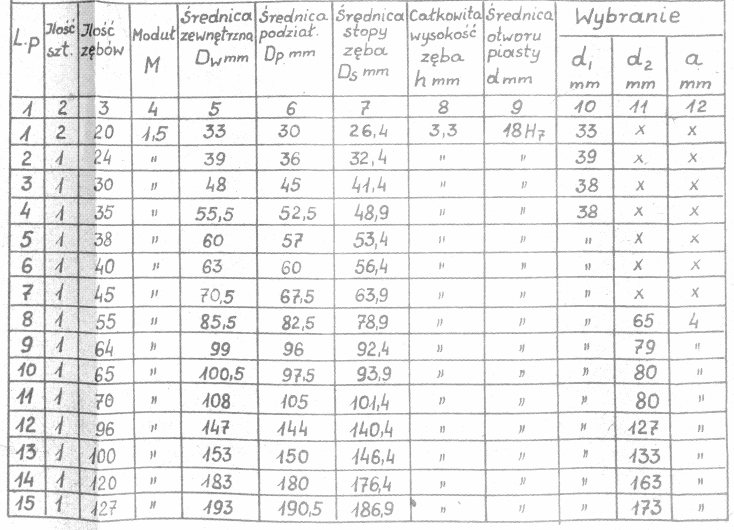 L.p | Ilość szt. | Ilość zębów | Moduł M | Średnica zewnętrzna Dw mm | Średnica podział. Dp mm | Średnica stopy zęba Ds mm | Całkowita wysokość zęba h mm | Średnica otworu piasty d mm | Wybranie d1 mm | d2 mm | a mm
1 2 3 4 5 6 7 8 9 10 11 12
1 2 20 1,5 33 30 26,4 3,3 18H7 33 x x
2 1 24 " 39 36 32,4 " " 39 x x
3 1 30 " 48 45 41,4 " " 38 x x
4 1 35 " 55,5 52,5 48,9 " " 38 x x
5 1 38 " 60 57 53,4 " " " x x
6 1 40 " 63 60 56,4 " " " x x
7 1 45 " 70,5 67,5 63,9 " " " x x
8 1 55 " 85,5 82,5 78,9 " " " 65 4
9 1 64 " 99 96 92,4 " " " 79 "
10 1 65 " 100,5 97,5 93,9 " " " 80 "
11 1 70 " 108 105 101,4 " " " 80 "
12 1 96 " 147 144 140,4 " " " 127 "
13 1 100 " 153 150 146,4 " " " 133 "
14 1 120 " 183 180 176,4 " " " 163 "
15 1 127 " 193 190,5 186,9 " " " 173 "